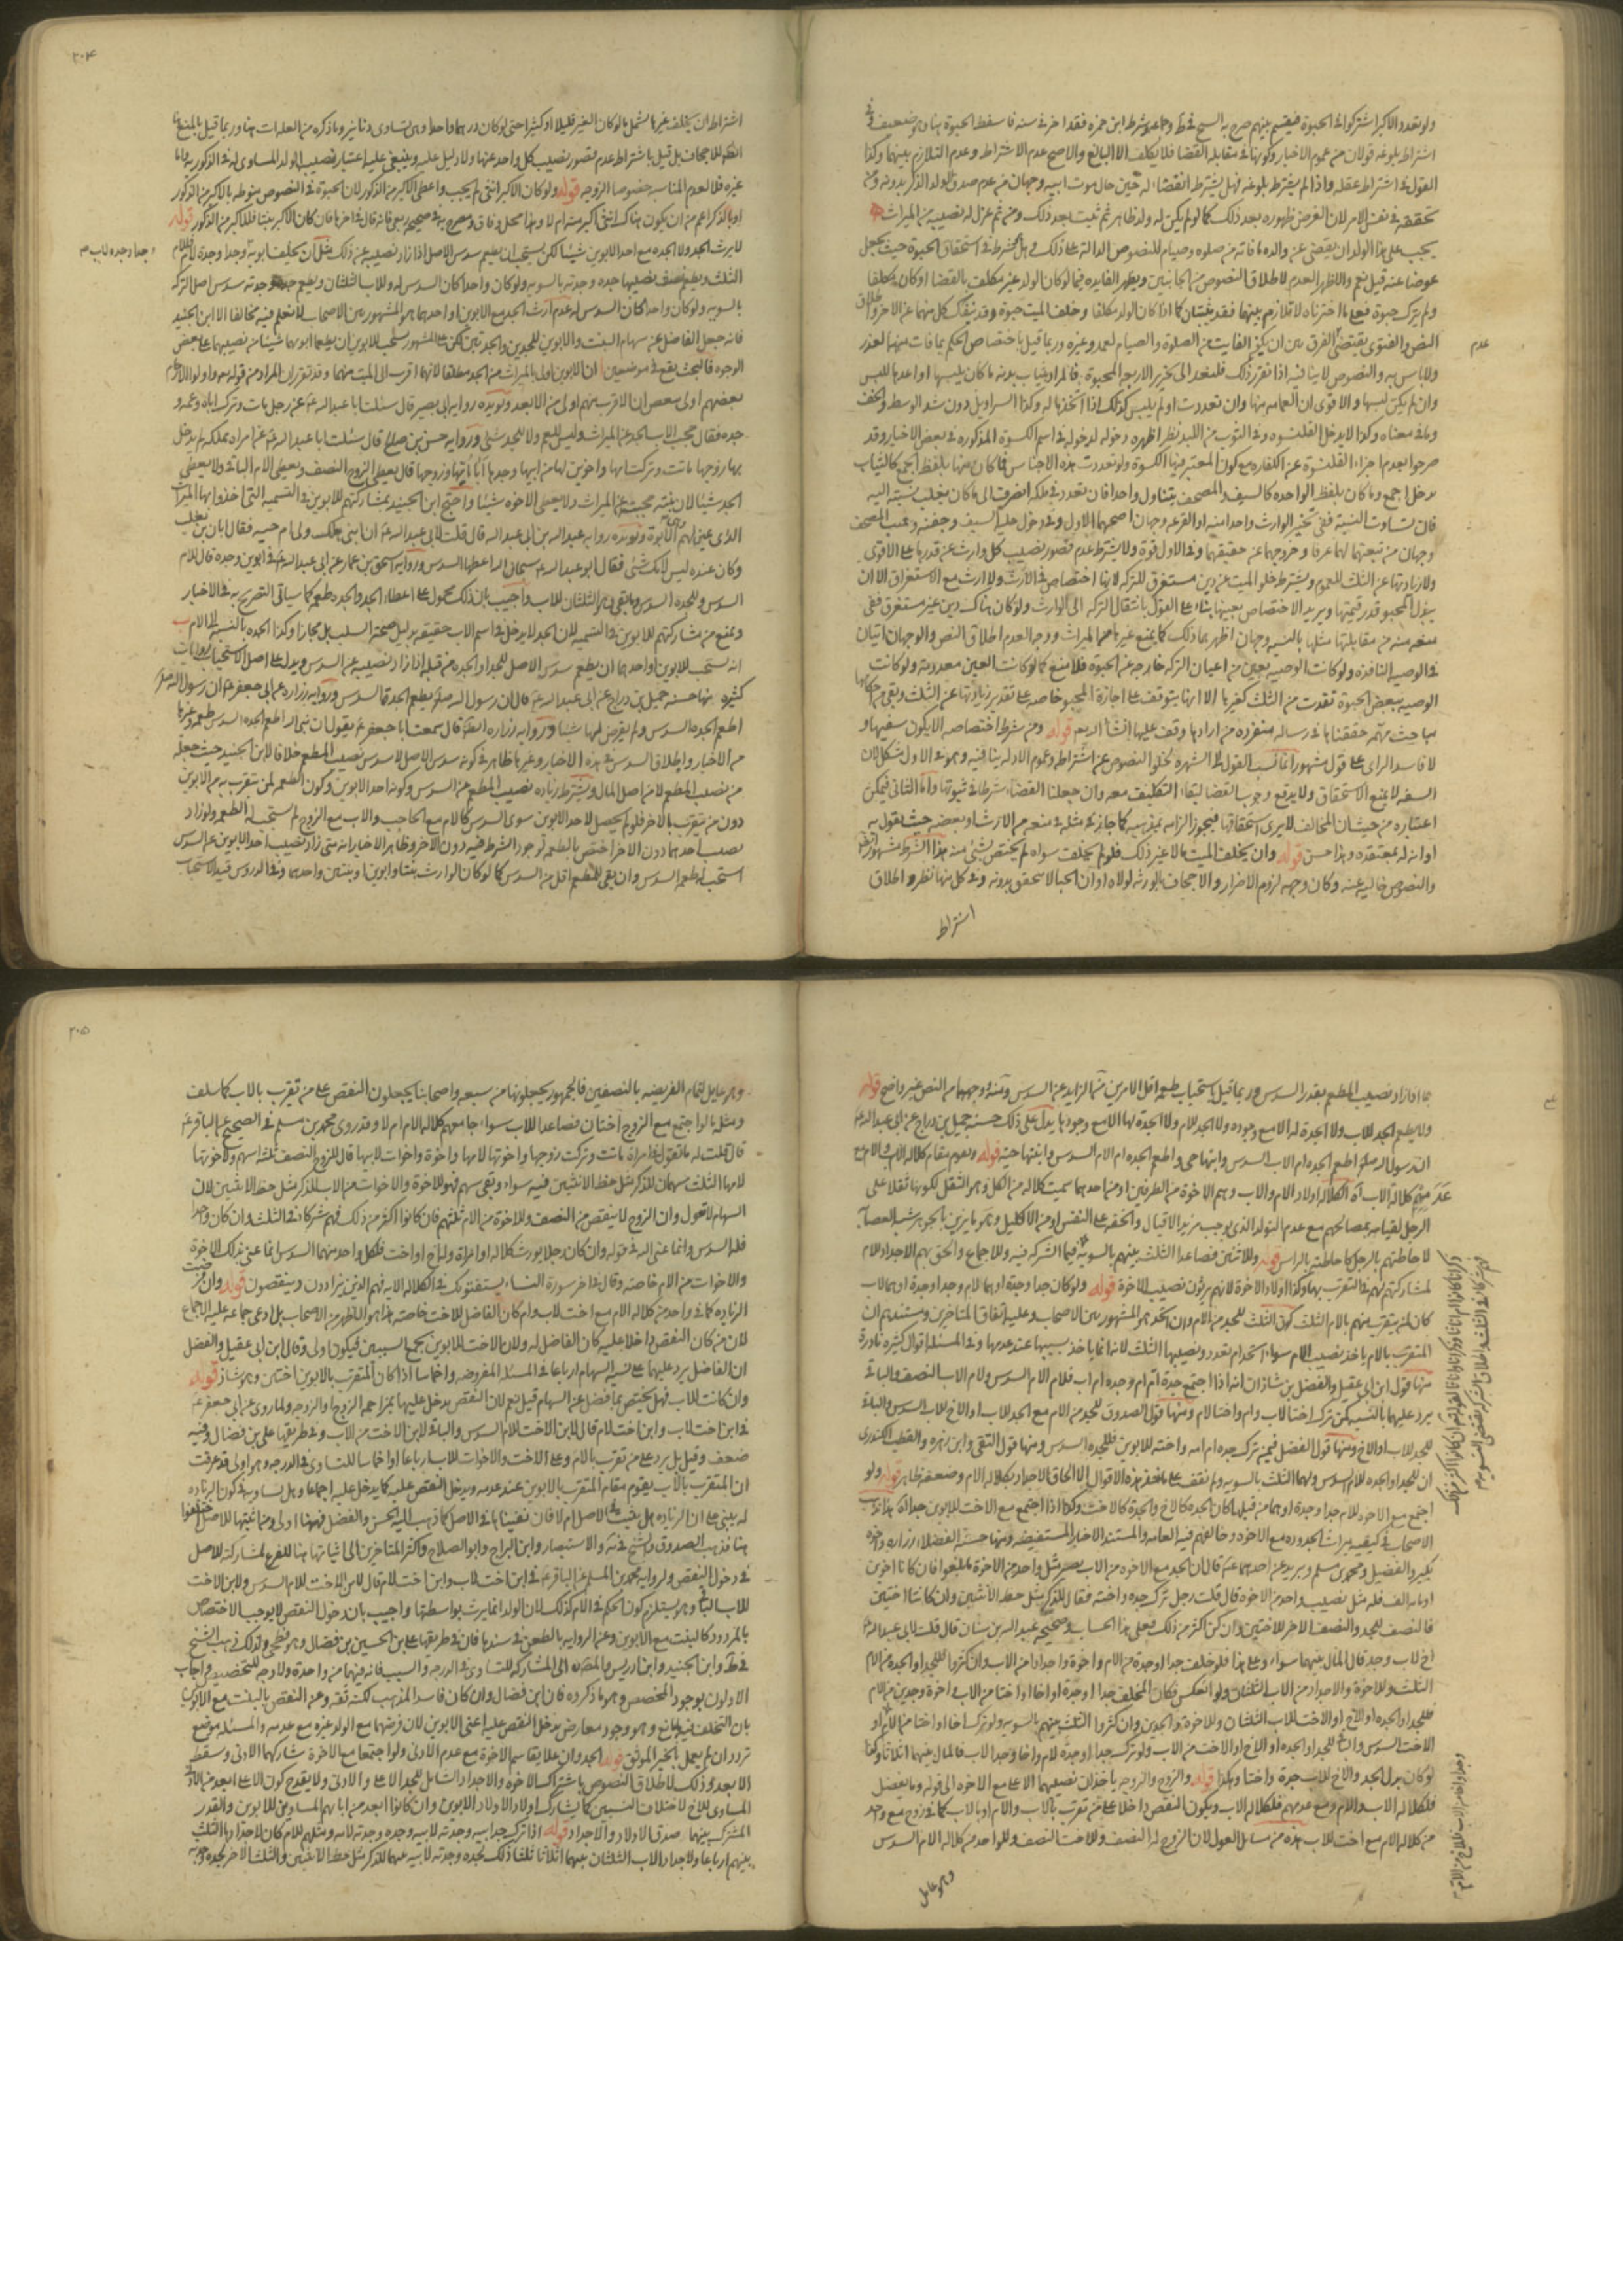 ولو تعدد الاكبر اشتركوا في الحبوة فيقسم بينهم صرح به الشيخ في ط وجماعه وشرط ابن حمزه فقد اخر في سنه فاسقط الحبوة
اشتراط بلوغه قولان من عموم الاخبار وكونها في مقابله القضا فلا يكلف الا البالغ والاصح عدم الاشتراط وعدم التلازم بينهما وكذا
القول في اشتراط عقله واذا لم يشترط بلوغه فهل يشترط انفصاله حين حال موت ابيه وجهان من عدم صدق الولد الذكر بدونه ومن
تحققه في نفس الامر لان الفرض ظهوره بعد ذلك كما لو لم يكن له ولد ظاهر ثم ثبت بعد ذلك ومن ثم عزل له نصيبه من الميراث
يجب على هذا الولد ان يقضي عن والده ما فاته من صلوه وصيام للنصوص الدالة على ذلك وهل يشترط في استحقاق الحبوة حيث يجعل
عوضا عنه قيل نعم والاظهر العدم لاطلاق النصوص من الجانبين ويظهر الفايده فيما لو كان الولد غير مكلف بالقضا او كان مكلفا
ولم يترك حبوة فعلى ما اخترناه لا تلازم بينهما فقد يثبتان كما اذا كان الولد مكلفا وخلف الميت حبوة وقد ينفك كل منهما عن الاخر واطلاق
النص والفتوى يقتضي عدم الفرق بين ان يكون الفايت من الصلوة والصيام لعمد وغيره وربما قيل باختصاص الحكم بما فات منهما لعذر
ولا باس به والنصوص لا ينافيه اذا تقرر ذلك فلنعد الى تحرير الاربعه المحبوة فالمراد بثياب بدنه ما كان يلبسها او اعدها للبس
وان لم يكن لبسها والاقوى ان العمامه منها وان تعددت او لم يلبس كذلك اذا اتخذها له وكذا السراويل دون شد الوسط والخف
وما في معناه وكذا لا يدخل القلنسوة وفي الثوب من اللبد نظر اظهره دخوله لدخوله في اسم الكسوة المذكوره في بعض الاخبار وقد
صرحوا بعدم اجزاء القلنسوة عن الكفاره مع كون المعتبر فيها الكسوة ولو تعددت هذه الاجناس فما كان منها بلفظ الجمع كالثياب
دخل اجمع وما كان بلفظ الواحده كالسيف والمصحف يتناول واحدا فان تعدد في ملكه انصرف الى ما كان يغلب نسبته اليه
فان تساوت النسبة ففي تخير الوارث واحدا منه او القرعه وجهان اصحهما الاول وفي دخول حلية السيف وجفنه وبيت المصحف
وجهان من تبعيتهما لهما عرفا وخروجهما عن حقيقتهما وفي الاول قوة ولا يشترط عدم قصور نصيب كل وارث عن قدرها على الاقوى
ولا زيادتها عن الثلث للعموم ويشترط خلو الميت عن دين مستغرق للتركه لانها اختصاص في الارث ولا ارث مع الاستغراق الا ان
يبذل المحبو قدر قيمتها ويريد الاختصاص بعينها بناء على القول بانتقال التركه الى الوارث ولو كان هناك دين غير مستغرق ففي
منعه منه من مقابلتها مثلها بالنسبه وجهان اظهرهما ذلك كما يمنع غيرها من الميراث ووجه العدم اطلاق النص والوجهان اتيان
في الوصيه النافذه ولو كانت الوصيه بعين من اعيان التركه خارجه عن الحبوة فلا منع كما لو كانت العين معدومة ولو كانت
الوصيه ببعض الحبوة نفذت من الثلث كغيرها الا انها يتوقف على اجازة المحبو خاصه على تقدير زيادتها عن الثلث وبقي من احكامها
مباحث مهمه حققناها في رساله منفرده من ارادها وقف عليها انشا الله تع قوله ومن شرط اختصاصه الا يكون سفيها و
لا فاسد الراى على قول مشهور انما نسب القول الى الشهرة لخلو النصوص عن اشتراطه وعموم الادله ينافيه وهو في الاول مشكل لان
السفه لا يمنع الاستحقاق ولا يدفع وجوب القضا لبقاء التكليف معه وان جعلنا القضاء شرطا في ثبوتها واما الثاني فيمكن
اعتباره من حيث ان المخالف لا يرى استحقاقها فيجوز الزامه بمذهبه كما جاز في مثله في منعه من الارث وبعضه حيث نقول به
او انه له بمعتقده وهذا حسن قوله وان يخلف الميت مالا غير ذلك فلو لم يخلف سواه لم يختص بشئ منه هذا الشرط مشهور
والنصوص خاليه عنه وكان وجهه لزوم الاضرار والاجحاف بالورثه لولاه او ان الحبا لا يتحقق بدونه وفي كل منهما نظر واطلاق
اشتراط
عدم
٢٠٤
اشتراط ان يخلف غيرها يشمل ما لو كان الغير قليلا او كثيرا حتى لو كان درهما واحدا وهي تساوى دنانير وما ذكره من العلات
للاجحاف بل قيل باشتراط عدم قصور نصيب كل واحد عنها ولا دليل عليه وينبغي عليه اعتبار نصيب الولد المساوى له في الذكوريه واما
غيره فلا لعدم المناسبه خصوصا الزوجه قوله ولو كان الاكبر انثى لم يحب واعطى الاكبر من الذكور لان الحبوة في النصوص منوطه بالاكبر من الذكور
او بالذكر اعم من ان يكون هناك انثى اكبر منه ام لا وهذا محل وفاق ومصرح به في صحيحه ربعي فانه قال في اخرها فان كان الاكبر بنتا فللاكبر من الذكور قوله
لا يرث الجد ولا الجده مع احد الابوين شيئا لكن يستحب ان يطعم سدس الاصل اذا زاد نصيبه عن ذلك مثل ان يخلف ابويه وجدا وجدة لام
وجدا وجده لاب
الثلث ويطعم نصف نصيبها جده وجدته بالسويه ولو كان واحدا كان السدس له وللاب الثلثان ويطعم جده وجدته سدس اصل التركه
بالسويه ولو كان واحدا كان السدس له عدم ارث الجد مع الابوين او احدهما هو المشهور بين الاصحاب لا نعلم فيه مخالفا الا ابن الجنيد
فانه جعل الفاضل عن سهام البنت والابوين للجدين والجدتين لكن على المشهور يستحب للابوين ان يطعما ابويهما شيئا من نصيبهما على بعض
الوجوه فالبحث يقع في موضعين ان الابوين اولى بالميراث من الجد مطلقا لانهما اقرب الى الميت منهما وقد تقرر ان المراد من قوله تع واولوا الارحام
بعضهم اولى ببعض ان الاقرب منهم اولى من الابعد ويؤيده روايه ابي بصير قال سئلت ابا عبد الله ع عن رجل مات وترك اباه وعمه و
جده فقال حجب الاب الجد عن الميراث وليس للعم ولا للجد شئ وروايه حسن بن صالح قال سئلت ابا عبد الله ع عن امراه مملكه لم يدخل
بها زوجها ماتت وتركت امها واخوين لها من ابيها وجدها ابا امها وزوجها قال يعطى الزوج النصف ويعطى الام الباقي ولا يعطى
الجد شيئا لان بنته حجبته عن الميراث ولا يعطى الاخوه شيئا واحتج ابن الجنيد بمشاركتهم للابوين في التسميه التي اخذوا بها الميراث
وكان عنده ليس لابنك شئ فقال ابو عبد الله ع سبحان الله اعطها السدس وروايه اسحق بن عمار عن ابي عبد الله ع في ابوين وجده قال للام
السدس وللجده السدس وما بقى وهو الثلثان للاب واجيب بان ذلك محمول على اعطاء الجد والجده طعمه كما سياتي التصريح به في الاخبار
ويمنع من مشاركتهم للابوين في التسميه لان الجد لا يدخل في اسم الاب حقيقه بدليل صحة السلب بل مجازا وكذا الجده بالنسبه الى الام
انه يستحب للابوين او احدهما ان يطعم سدس الاصل للجد او الجده من قبله اذا زاد نصيبه عن السدس ويدل على اصل الاستحباب روايات
كثيره منها حسنه جميل بن دراج عن ابي عبد الله ع قال ان رسول الله صلعم اطعم الجده السدس وروايه زراره عن ابي جعفر ع ان رسول الله صلعم
اطعم الجده السدس ولم يفرض لها شيئا وروايه زراره ايضا قال سمعت ابا جعفر ع يقول ان نبي الله اطعم الجده السدس طعمه وغيرها
من الاخبار واطلاق السدس في هذه الاخبار وغيرها ظاهر في كونه سدس الاصل لا سدس نصيب المطعم خلافا لابن الجنيد حيث جعله
من نصيب المطعم لا من اصل المال ويشترط زياده نصيب المطعم عن السدس وكونه احد الابوين وكون الطعمه لمن يتقرب به من الابوين
دون من يتقرب بالاخر فلو لم يحصل لاحد الابوين سوى السدس كالام مع الحاجب والاب مع الزوج لم يستحب له الطعمه ولو زاد
نصيب احدهما دون الاخر اختص بالطعمه لوجود الشرط فيه دون الاخر وظاهر الاخبار انه متى زاد نصيب احد الابوين عن السدس
استحب له طعم السدس وان بقى للمطعم اقل من السدس كما لو كان الوارث بنتا وابوين او بنتين واحدهما وفي الدروس قيد الاستحباب
بما اذا زاد نصيب المطعم بقدر السدس وربما قيل باستحباب طعمه اقل الامرين من الزايد عن السدس ومنه ووجههما من النص غير واضح قوله
ولا يطعم الجد للاب ولا الجدة له الا مع وجوده ولا الجد للام ولا الجدة لها الا مع وجودها يدل على ذلك حسنة جميل بن دراج عن ابي عبد الله ع
ان رسول الله صلعم اطعم الجده ام الاب السدس وابنها حي واطعم الجده ام الام السدس وابنتها حيه قوله ويقوم مقام كلالة الاب والام مع
عدمهم كلالة الاب اه الكلالة اولاد الام والاب وهم الاخوة من الطرفين او من احدهما سميت كلاله من الكل وهو الثقل لكونها ثقلا على
الرجل لقيامه بمصالحهم مع عدم التولد الذي يوجب مزيد الاقبال والخفه على النفس او من الاكليل وهو ما يزين بالجوهر شبه العصابه
لاحاطتهم بالرجل كاحاطته بالراس قوله وللاثنين فصاعدا الثلث بينهم بالسويه فيما الشركه فيه وللاجماع والحق بهم الاجداد للام
لمشاركتهم لهم في التقرب بها وكذا اولاد الاخوة لانهم يرثون نصيب الاخوة قوله ولو كان جدا وجدة او هما لام وجدا وجدة او هما لاب
كان لمن يتقرب منهم بالام الثلث كون الثلث للجد من الام وان اتحد هو المشهور بين الاصحاب وعليه اتفاق المتاخرين ومستندهم ان
المتقرب بالام ياخذ نصيب الام سواء اتحد ام تعدد ونصيبها الثلث لانه انما ياخذ بسببها عند عدمها وفي المسئلة اقوال كثيره نادرة
منها قول ابن ابي عقيل والفضل بن شاذان انه اذا اجتمع جدة ام ام وجدة ام اب فلام الام السدس ولام الاب النصف والباقي
يرد عليهما بالنسبه كمن ترك اختا لاب وام واختا لام ومنها قول الصدوق للجد من الام مع الجد للاب او الاخ للاب السدس والباقي
للجد للاب او الاخ ومنها قول الفضل فيمن ترك جده ام امه واخته للابوين فللجده السدس ومنها قول التقي وابن زهره والقطب الكيدرى
ان للجد او الجده للام السدس ولهما الثلث بالسويه ولم نقف على ماخذ هذه الاقوال الا الحاق الاجداد بكلاله الام وضعفه ظاهر قوله ولو
اجتمع مع الاخوه للام جد او جدة او هما من قبلها كان الجد كالاخ والجدة كالاخت وكذا اذا اجتمع مع الاخت للابوين جد
الاصحاب في كيفيه ميراث الجدوده مع الاخوه وخالفهم فيه العامه والمستند الاخبار المستفيضه ومنها حسنة الفضلاء زراره و
بكير والفضيل ومحمد بن مسلم وبريد عن احدهما ع قال ان الجد مع الاخوه من الاب يصير مثل واحد من الاخوة ما بلغوا
فالنصف للجد والنصف الاخر للاختين وان كن اكثر من ذلك فعلى هذا الحساب وصحيحه عبد الله بن سنان قال قلت لابي عبد الله ع
اخ لاب وجد قال المال بينهما سواء وعلى هذا فلو خلف جدا او جدة من الام واخوة واجدادا من الاب وان كثروا للجد او الجدة من الام
الثلث وللاخوة والاجداد من الاب الثلثان ولو انعكس فكان المخلف جدا او جدة او اخا او اختا من الاب واخوة وجدين من الام
فللجد او الجده او الاخ او الاخت للاب الثلثان وللاخوة والجدين وان كثروا الثلث بينهم بالسويه ولو ترك اخا او اختا من الام او
لو كان بدل الجد والاخ للاب جدة واختا وهكذا قوله والزوج والزوجه ياخذان نصيبهما الاعلى مع الاخوه الى قوله وما يفضل
فلكلاله الاب والام ومع عدمهم فلكلاله الاب ويكون النقص داخلا على من تقرب بالاب والام او بالاب كما في زوج مع واحد
من كلاله الام مع اخت للاب هذه من مسائل العول لان الزوج له النصف وللاخت النصف وللواحد من كلاله الام السدس
وهو عايل
٢٠٥
وهو عايل لتمام الفريضه بالنصفين فالجمهور يجعلونها من سبعه واصحابنا يجعلون النقص على من تقرب بالاب كما سلف
ومثله ما لو اجتمع مع الزوج اختان فصاعدا للاب سواء جامعهم كلاله الام ام لا وقد روى محمد بن مسلم في الصحيح عن الباقر ع
قال قلت له ما تقول في امراة ماتت وتركت زوجها واخوتها لامها واخوة واخوات لابيها قال للزوج النصف ثلثه اسهم ولاخوتها
لامها الثلث سهمان للذكر مثل حظ الانثيين فيه سواء وبقي سهم فهو للاخوة والاخوات من الاب للذكر مثل حظ الانثيين لان
السهام لا تعول وان الزوج لا ينقص من النصف ولا الاخوة من الام من ثلثهم فان كانوا اكثر من ذلك فهم شركا في الثلث وان كان واحدا
فله السدس وانما عنى الله في قوله وان كان رجل يورث كلاله او امراة وله اخ او اخت فلكل واحد منهما السدس انما عنى بذلك الاخوة
والاخوات من الام خاصه وقال في اخر سورة النساء يستفتونك في الكلاله الايه فهم الذين يزادون وينقصون قوله وان
الزياده كما في واحد من كلاله الام مع اخت لاب وام كان الفاضل للاخت خاصه هذا هو الاظهر من الاصحاب بل ادعى جماعه عليه الاجماع
لان من كان النقص داخلا عليه كان الفاضل له ولان الاخت للابوين بجمع السببين فيكون اولى وقال ابن ابي عقيل والفضل
ان الفاضل يرد عليهما على نسبه السهام ارباعا في المسئله المفروضه واخماسا اذا كان المتقرب بالابوين اختين وهو شاذ قوله
وان كانت للاب فهل يختص بما فضل عن السهام قيل نعم لان النقص يدخل عليها بمزاحمه الزوج او الزوجه ولما روى عن ابي جعفر ع
في ابن اخت لاب وابن اخت لام قال لابن الاخت للام السدس والباقي لابن الاخت من الاب وفي طريقها علي بن فضال وفيه
ضعف وقيل بل يرد على من تقرب بالام وعلى الاخت والاخوات للاب ارباعا او اخماسا للتساوى في الدرجه وهو اولى قد عرفت
ان المتقرب بالاب يقوم مقام المتقرب بالابوين عند عدمه ويدخل النقص عليه كما يدخل عليه اجماعا وهل يساويه في كون الزياده
هنا فذهب الصدوق والشيخ في يه والاستبصار وابن البراج وابو الصلاح واكثر المتاخرين الى اثباتها هنا للفرع لمشاركته للاصل
في دخول النقص ولروايه محمد بن المسلم عن الباقر ع في ابن اخت لاب وابن اخت لام قال لابن الاخت للام السدس ولابن الاخت
للاب الباقي وهو يستلزم كون الحكم في الام كذلك لان الولد انما يرث بواسطتها واجيب بان دخول النقص لا يوجب الاختصاص
بالمردود كالبنت مع الابوين وعن الروايه بالطعن في سندها فان في طريقها علي بن الحسين بن فضال وهو فطحى ولذلك ذهب الشيخ
في ط وابن الجنيد وابن ادريس والمصنف الى المشاركه للتساوى في الدرجه والسبب فانه فيهما من واحدة ولا وجه للتخصيص واجاب
الاولون بوجود المخصص وهو ما ذكر ورده فان ابن فضال وان كان فاسد المذهب لكنه ثقه وعن النقص بالبنت مع الابوين
بان التخلف لمانع وهو وجود معارض يدخل النقص عليه اعني الابوين لان فرضهما مع الولد غيره مع عدمه والمسئله موضع
تردد ان لم يعمل بالخبر الموثق قوله الجد وان علا يقاسم الاخوة مع عدم الادنى ولو اجتمعا مع الاخوة شاركهما الادنى وسقط
الابعد وذلك لاطلاق النصوص باشتراك الاخوه والاجداد الشامل للجد الاعلى والادنى ولا يقدح كون الاعلى ابعد من الادنى
المساوى للاخ لاختلاف السببين كما يشارك اولاد الاولاد الابوين وان كانوا ابعد من ابائهم المساوين للابوين والقدر
المشترك بينهما صدق الاولاد والاجداد قوله اذا ترك جد ابيه وجدته لابيه وجده وجدته لامه ومثلهم للام كان لاجداد الام الثلث
بينهم ارباعا ولاجداد الاب الثلثان بينهما اثلاثا ثلثا ذلك لجده وجدته لابيه بينهما للذكر مثل حظ الانثيين والثلث الاخر لجده وجدته